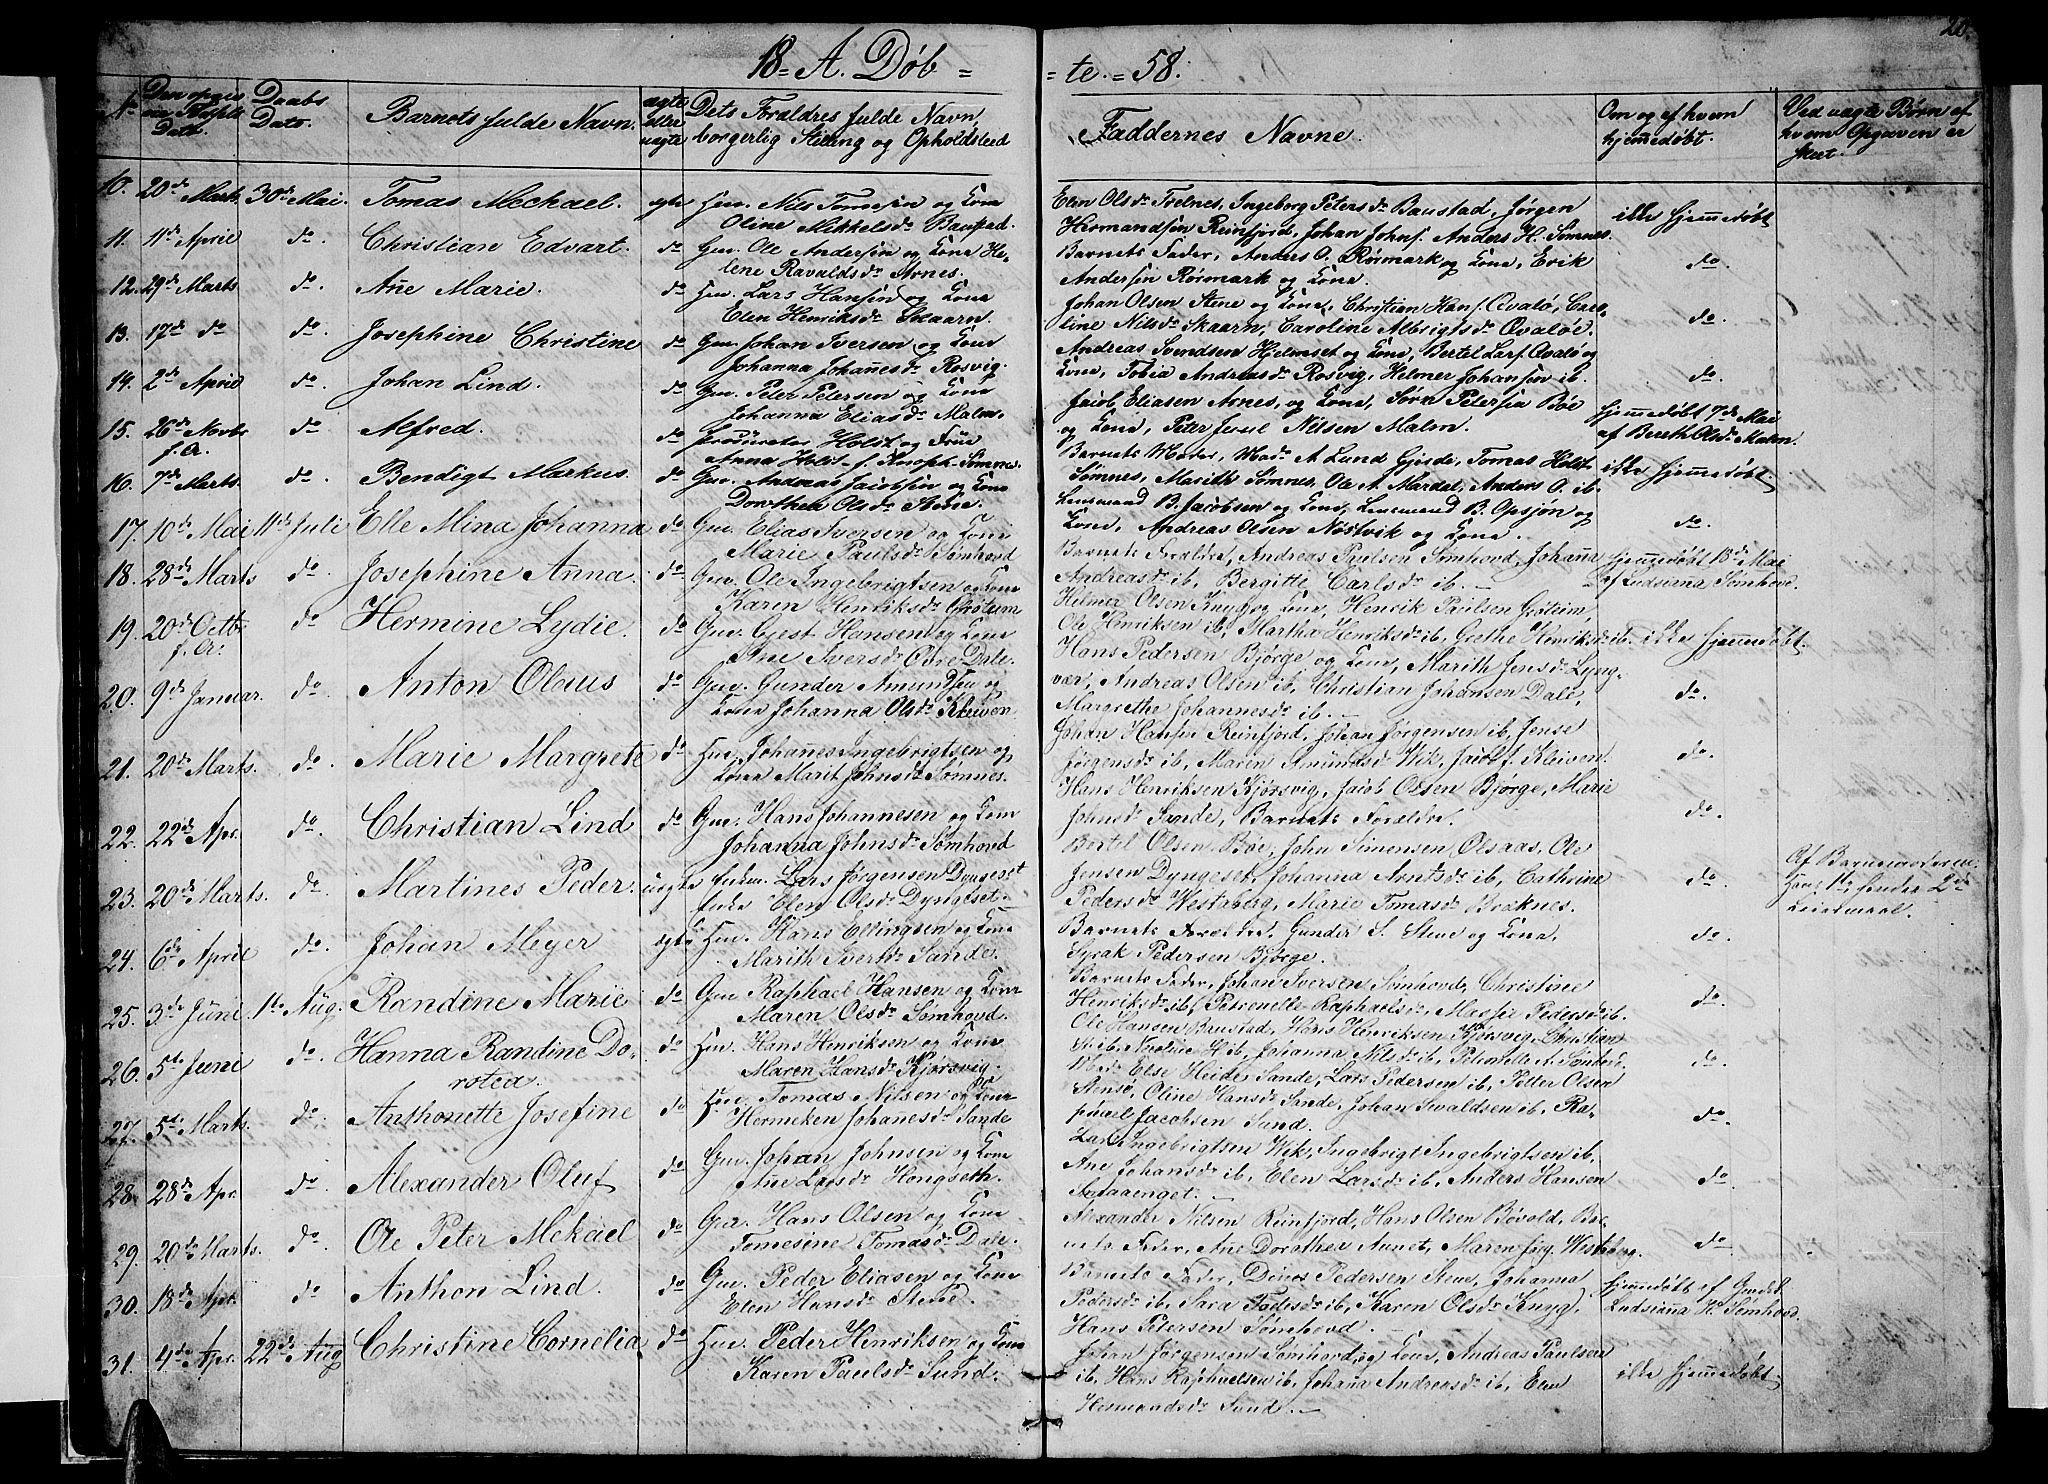 20.
18 = A. Døb = = te. = 58.
No Den opgivne Fødsels Dato. Daabs Dato. Barnets fulde Navn. ægte eller uægte Dets Forældres fulde Navn, borgerlig Stilling og Opholdssted Faddernes Navne. Om og af hvem hjemmedøbt. Ved uægte Børn af hvem Opgaven er skeet.
10. 20de Marts 30de Mai. Tomas Mechael. ægte Hm. Nils Tomesen og Kone
Oline Mikkelsdr Baustad.
Elen Olsdr Trelnes, Ingeborg Petersdr Baustad, Jørgen
Hermandsen Reinfjord, Johan Johns. Anders H. Sømnes.
ikke hjemmedøbt
11. 11de April do. Christian Edvart. do Gm. Ole Andersen og Kone He-
lene Ravaldsdr Arnes.
Barnets Fader, Anders O. Rørmark og Kone, Erik
Andersen Rørmark og Kone.
do
12. 29de Marts do. Ane Marie. do Hm. Lars Hansen og Kone
Elen Henriksdr Skaarn.
Johan Olsen Stene og Kone, Christian Hans. Qvalø, Cae-
line Nilsdr Skaarn, Caroline Albrigtsdr Qvaløe.
do.
13. 17de do do. Josephine Christine do Gm. Johan Iversen og Kone
Johanna Johanesdr Rosvig.
Andreas Svendsen Hjelmset og Kone, Bertel Lars. Qvalø og
Kone, Tobia Andreasdr Rosvig, Helmer Johansen ib.
do.
14. 2de April do. Johan Lind. do Gm. Peter Petersen og Kone
Johanna Eliasdr Malm.
Jacob Eliasen Arnes, og Kone, Sørn Petersen Bøe
og Kone, Peter Nilsen Malm.
hjemmedøbt 7de Mai
af Bereth Olsdr Malm.
15. 26de Novbr f. Ar. do. Alfred. do procurator Holst og Frue
Anna Holst f. Knoph Sømnes
Barnets Moder, Mad. A Lund Gjeide, Tomas Holst
Sømnes, Marith Sømnes, Ole A. Mardal, Anders O. ib.
ikke hjemmedøbt
16. 7de Marts. do. Bendigt Markus. do Gm. Andreas Jacobsen og Kone
Dorothea Olsdr Stene.
Lensmand B. Jacobsen og Kone, Lensmand B. Opsjøn og
Kone, Andreas Olsen Nøstvik og Kone.
do.
17. 10de Mai 11de Juli Elle Mina Johanna do Gm. Elias Iversen og Kone
Marie Paulsdr Sømhovd
Barnets Forældre, Andreas Paulsen Sømhovd, Johanna
Andreasdr ib, Bergitte Carlsdr ib.
hjemmedøbt 13de Mai
af Ludsiana Sømhovd.
18. 28de Marts do. Josephine Anna. do. Gm. Ole Ingebrigtsen og Kone
Karen Henriksdr Grøtum
Helmer Olsen Knyg og Kone, Henrik Paulsen Grøteim,
Ole Henriksen ib, Martha Henriksdr ib, Grethe Henriksdr ib.
ikke hjemmedøbt.
19. 20de Octbr f. Ar. do Hermine Lydie. do Gm. Gjest Hansen og Kone
Ane Iversdr Øvre Dale.
Hans Pedersen Bjørge og Kone, Marith Jensdr Lyng-
vær, Andreas Olsen ib, Christian Johansen Dale,
Margrethe Johannesdr ib.
do.
20. 9de Januar. do. Anton Olaus do. Gm. Gunder Amundsen og
Kone Johanna Olsdr Kleiven
Johan Hansen Reinfjord, Johan Jørgensen ib, Jense
Jørgensdr ib, Maren Amundsdr Wik, Jacob J. Kleiven.
do.
21. 20de Marts. do. Marie Margrete do. Hm. Johanes Ingebrigtsen og
Kone Marit Johnsdr Sømnes.
Hans Henriksen Kjørsvig, Jacob Olsen Bjørge, Marie
Johnsdr Sande, Barnets Forældre.
do.
22. 22de Apr. do. Christian Lind do Gm. Hans Johannesen og Kone
Johanna Johnsdr Sømhovd
Bertel Olsen Bøe, John Simensen Olsaas, Ole
23. 20de Marts. do. Martines Peder. uægte Lars Jørgensen Dyngeset
Elen Olsdr Dyngeset.
Jensen Dyngeset, Johanna Arntsdr ib, Cathrine
Pedersdr Westaberg, Marie Tomasdr Braknes.
do. Af Barnemoderen.
Hans 1te hendes 2de
Leiermaal.
24. 6de April do. Johan Meyer ægte Hm. Hans Ellingsen og Kone
Marith Ivertsdr Sande.
Barnets Forældre, Gunder S. Stene og Kone,
Syrak Pedersen Bjørge.
do.
25. 3de Juni 1te Aug. Randine Marie do. Gm Raphael Hansen og Kone
Maren Olsdr Sømhovd.
Barnets Fader, Johan Iversen Sømhovd, Christine
Henriksdr ib, Petronelle Raphaelsdr, Massie Pedersdr ib.
do.
26. 5te Juni do. Hanna Randine Do-
rotea. do Hm. Hans Henriksen og Kone
Maren Hansdr Kjørsvig.
Ole Hansen Baustad, Hans Henriksen Kjørsvig, Christian
ib, Nicoline H. ib, Johanna Nilsdr ib, Petronelle A.
do.
27. 5te Marts. do. Anthonette Josefine do Hm. Tomas Nilsen og Kone
Hermeken Johanesdr Sande
Mad. Else Heide Sande, Lars Pedersen ib, Petter Olsen
Stensø, Oline Hansdr Sande, Johan Sivaldsen ib, Ra-
phael Jacobsen Sund.
do.
28. 28de Apr. do. Alexander Oluf do Gm. Johan Johnsen og Kone
Ane Larsdr Hongseth.
Lars Ingebrigtsen Wik, Ingebrigt Ingebrigtsen ib,
Ane Johansdr ib, Elen Larsdr ib, Anders Hansen
Smaaenget.
do.
29. 20de Marts. do. Ole Peter Mekael do Gm. Hans Olsen og Kone
Tomesine Tomasdr Dale.
Alexander Nilsen Reinfjord, Hans Olsen Bøvold, Bar-
nets Fader, Ane Dorothea Aunet, Maren Jørg. Westaberg.
do.
30. 18de Apr. do. Anthon Lind. do Gm. Peder Eliasen og Kone
Elen Hansdr Stene.
Barnets Fader, Dines Pedersen Stene, Johanna
Pedersdr ib, Sara ib, Karen Olsdr Knyg,
Hans Petersen Sømhovd.
hjemmedøbt af
Ludsiana Sømhovd.
31. 4de Apr. 22de Aug Christine Cornelia. do Hm. Peder Henriksen og Kone
Karen Paulsdr Sund.
Johan Jørgensen Sømhovd og Kone, Andreas Paulsen
ib, Hans Raphaelsen ib, Johanna Andreasdr ib, Elen
Hermandsdr Sund.
ikke hjemmedøbt